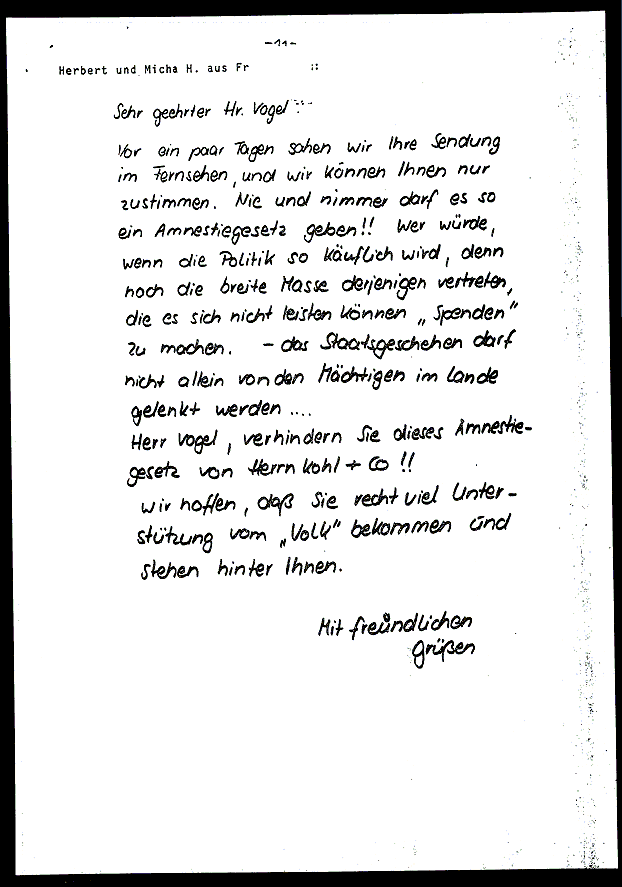 -11-
Herbert und Micha H. aus Fr
Sehr geehrter Hr. Vogel
Vor ein paar Tagen sahen wir Ihre Sendung
im Fernsehen, und wir können Ihnen nur
zustimmen. Nie und nimmer darf es so
ein Amnestiegesetz geben!! Wer würde,
wenn die Politik so käuflich wird, denn
noch die breite Masse derjenigen vertreten,
die es sich nicht leisten können „Spenden"
zu machen. - das Staatsgeschehen darf
nicht allein von den Mächtigen im Lande
gelenkt werden ....
Herr Vogel, verhindern Sie dieses Amnestie-
gesetz von Herrn Kohl + Co !!
Wir hoffen, daß Sie recht viel Unter-
stützung vom „Volk" bekommen und
stehen hinter Ihnen.
Mit freundlichen
Grüßen